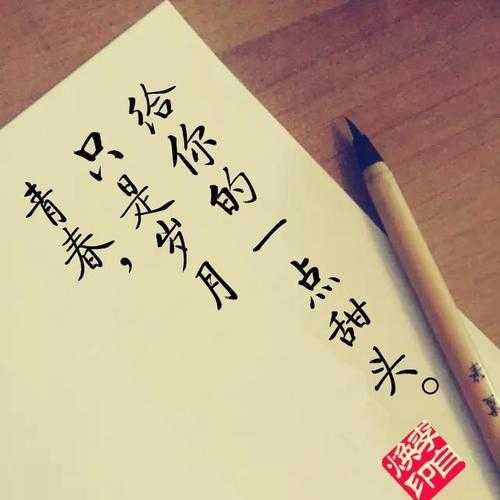 青春，
只是岁月
给你的一点甜头。